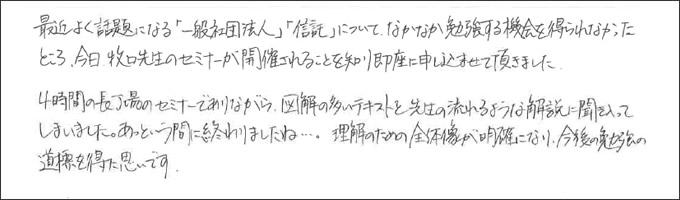 最近よく話題になる「一般社団法人」「信託」について、なかなか勉強する機会を得られなかった
ところ、今日牧口先生のセミナーが開催されることを知り即座に申し込ませて頂きました。
4時間の長丁場のセミナーでありながら、図解の多いテキストと先生の流れるような解説に聞き入って
しまいました。あっという間に終わりましたね…。理解のための全体像が明確になり、今後の勉強の
道標を得た思いです。